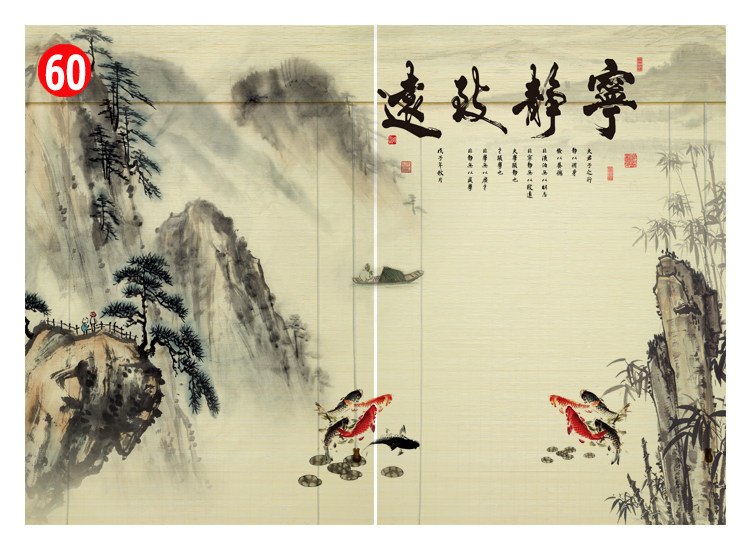 60
寧靜致遠
夫君子之行
靜以修身
儉以養德
非淡泊無以明志
非寧靜無以致遠
夫學須靜也
才須學也
非學無以廣才
非靜無以成學
戊子年秋月